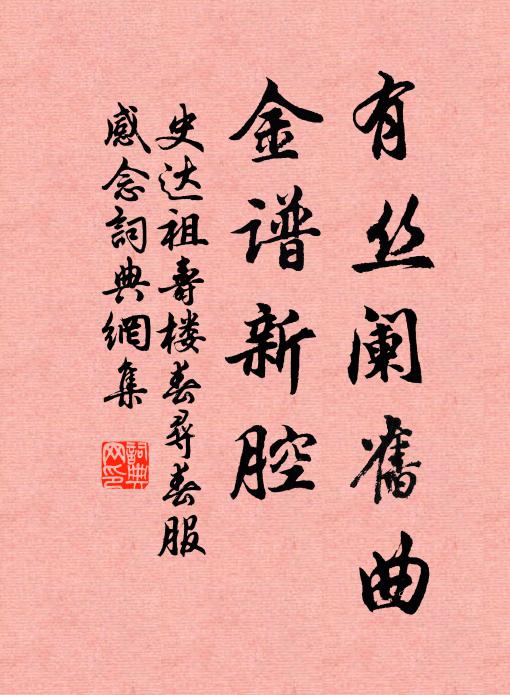 有丝阑舊曲
金谱新腔
史达祖壽楼春尋春服
感念詞典網集
詞典网印